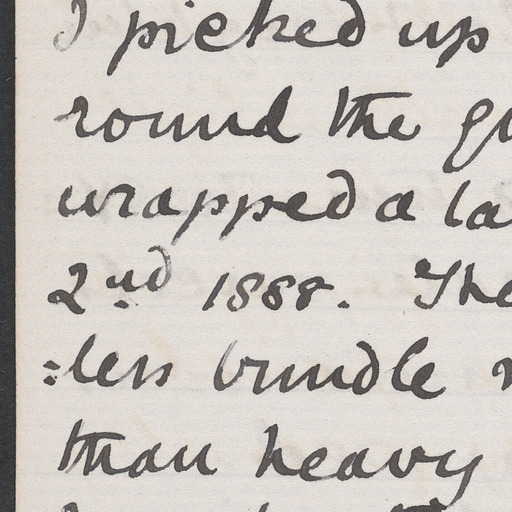 I picked up
round the
wrapped a
2nd 1888. The
=less bundle
than heavy